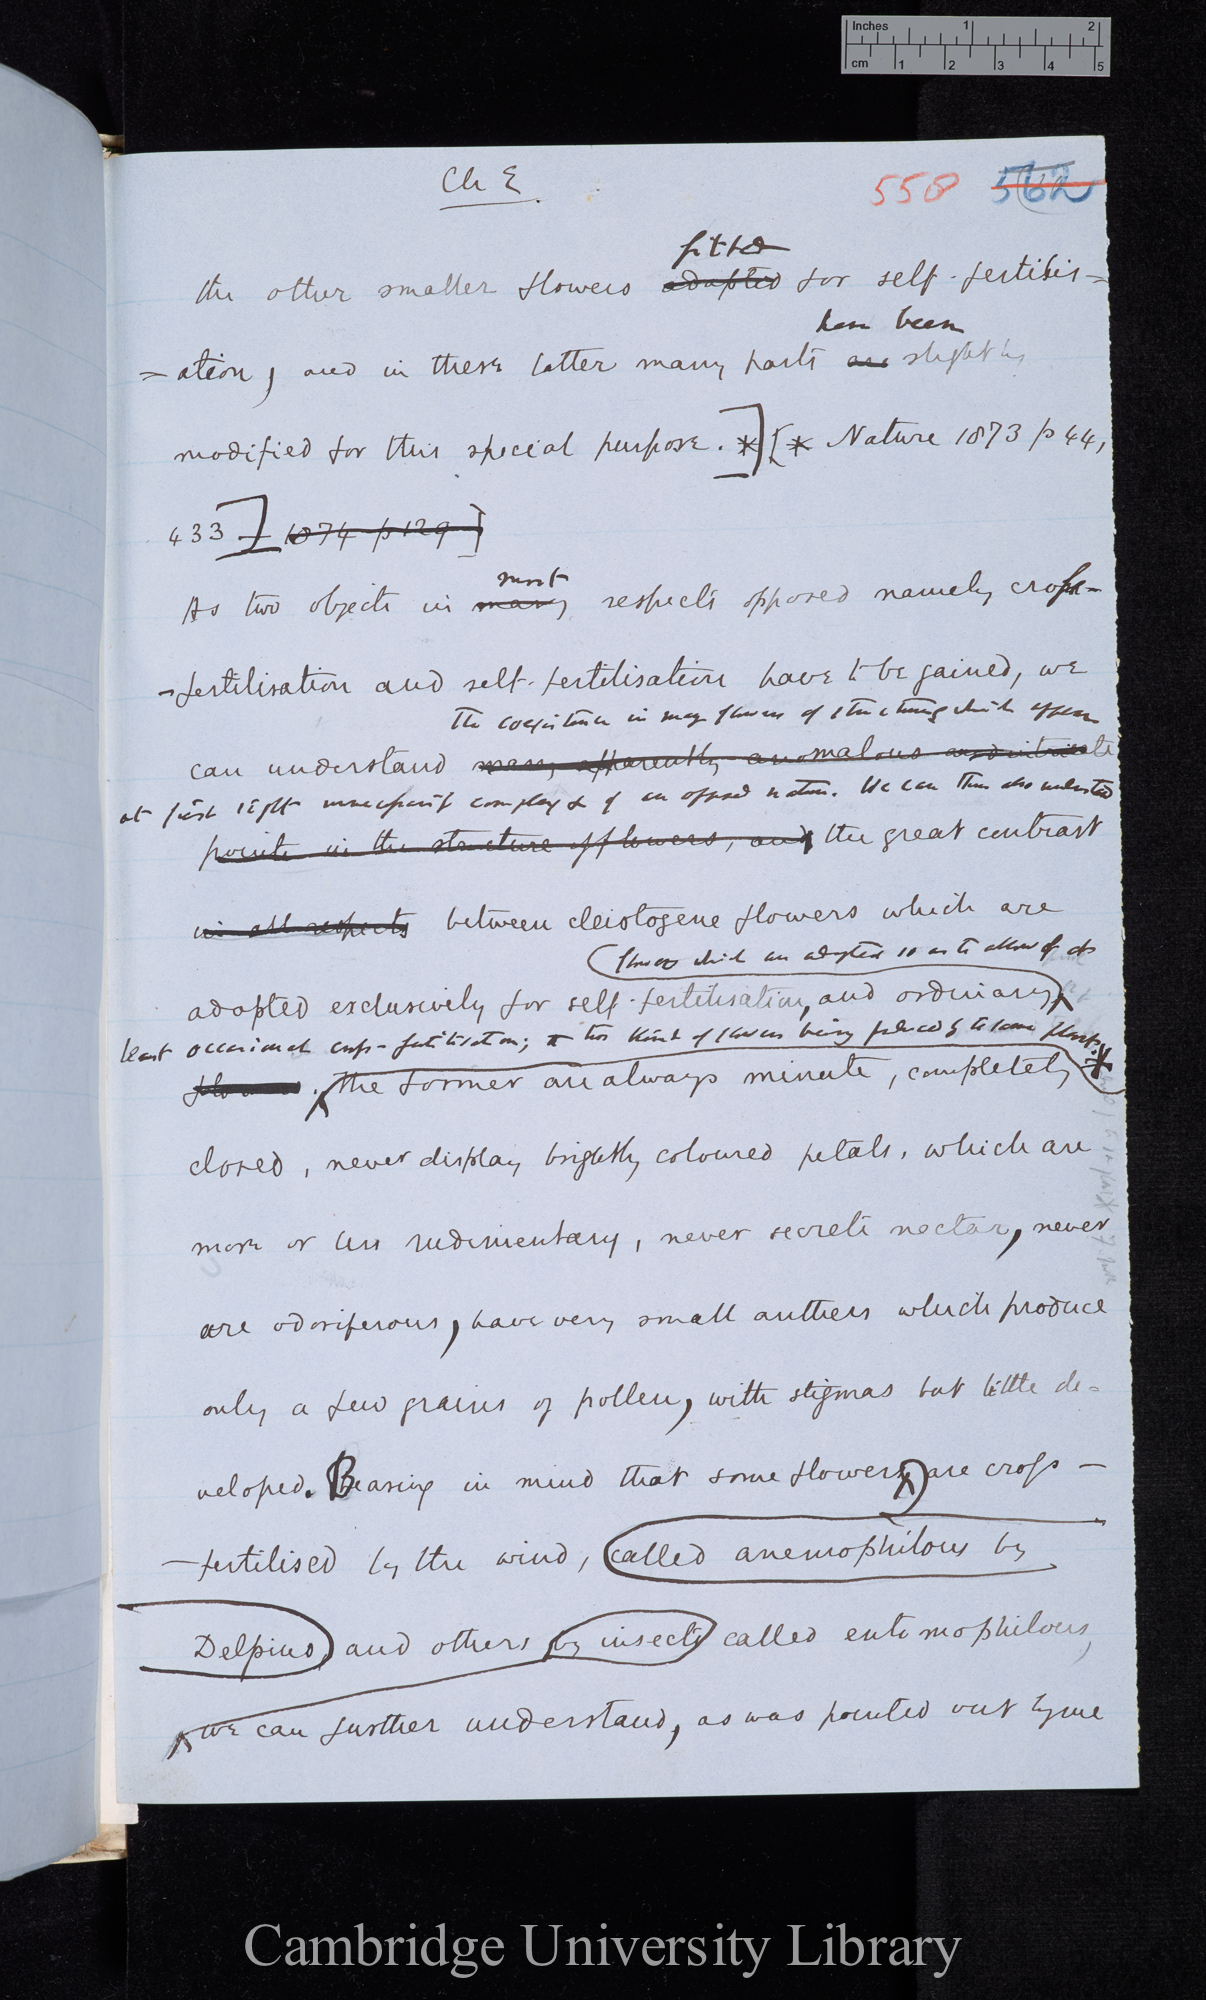 Inches 1 2
cm 1 2 3 4 5
Ch E
558 562
fitted
the other smaller flowers adapted for self-fertilis=
have been
=ation, and in these latter many parts are slightly
modified for this special purpose. *] [* Nature 1873 p 44,
433] 1874 p 129]
most
As two objects in many respects opposed namely cross-
-fertilisation and self-fertilisation have to be gained, we
The coexistence in many flowers of structures which appear
can understand many apparently anomalous and intricate
at first sight unnecessarily complex & of an opposed nature. We can thus also understand
points in the structure of flowers, and the great contrast
in all respects between cleistogene flowers which are
flowers which are adapted so as to allow of at
adapted exclusively for self-fertilisation, and ordinary
least occasional cross-fertilisation; two kinds of flowers being produced by the same plants.
flowers. the former are always minute, completely
closed, never display brightly coloured petals, which are
more or less rudimentary, never secrete nectar, never
are odoriferous, have very small anthers which produce
only a few grains of pollen, with stigmas but little de=
veloped. Bearing in mind that some flowers are cross-
-fertilised by the wind, called anemophilous by
Delpino, and others by insects called entomophilous,
we can further understand, as was pointed out by me
Cambridge University Library